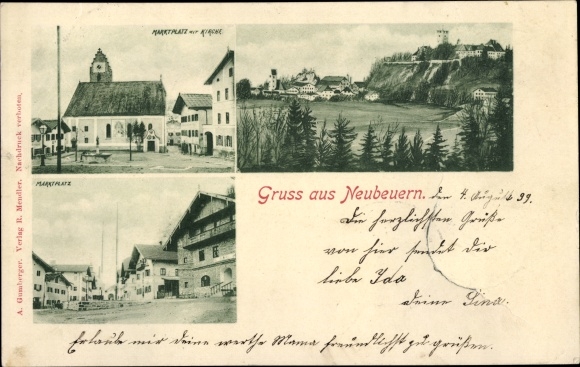 MARKTPLATZ MIT KIRCHE
MARKTPLATZ
A. Gumberger. Verlag R. Mendler. Nachdruck verboten.
Gruss aus Neubeuern.
den 4. August 99.
Die herzlichsten Grüße
von hier sendet dir
liebe Ida
deine Lina.
Erlaube mir deine werthe Mama freundlichst zu grüßen.